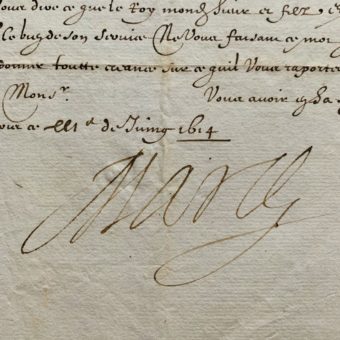 vous dire ce que le Roy monds. sieur et filz, e
le buz de son service Ne Vous faisant ce mot
donner toutte creance sur ce quil Vous raporter
Monsr. Vous avoir en sa
ce de Juing 1614
Marie